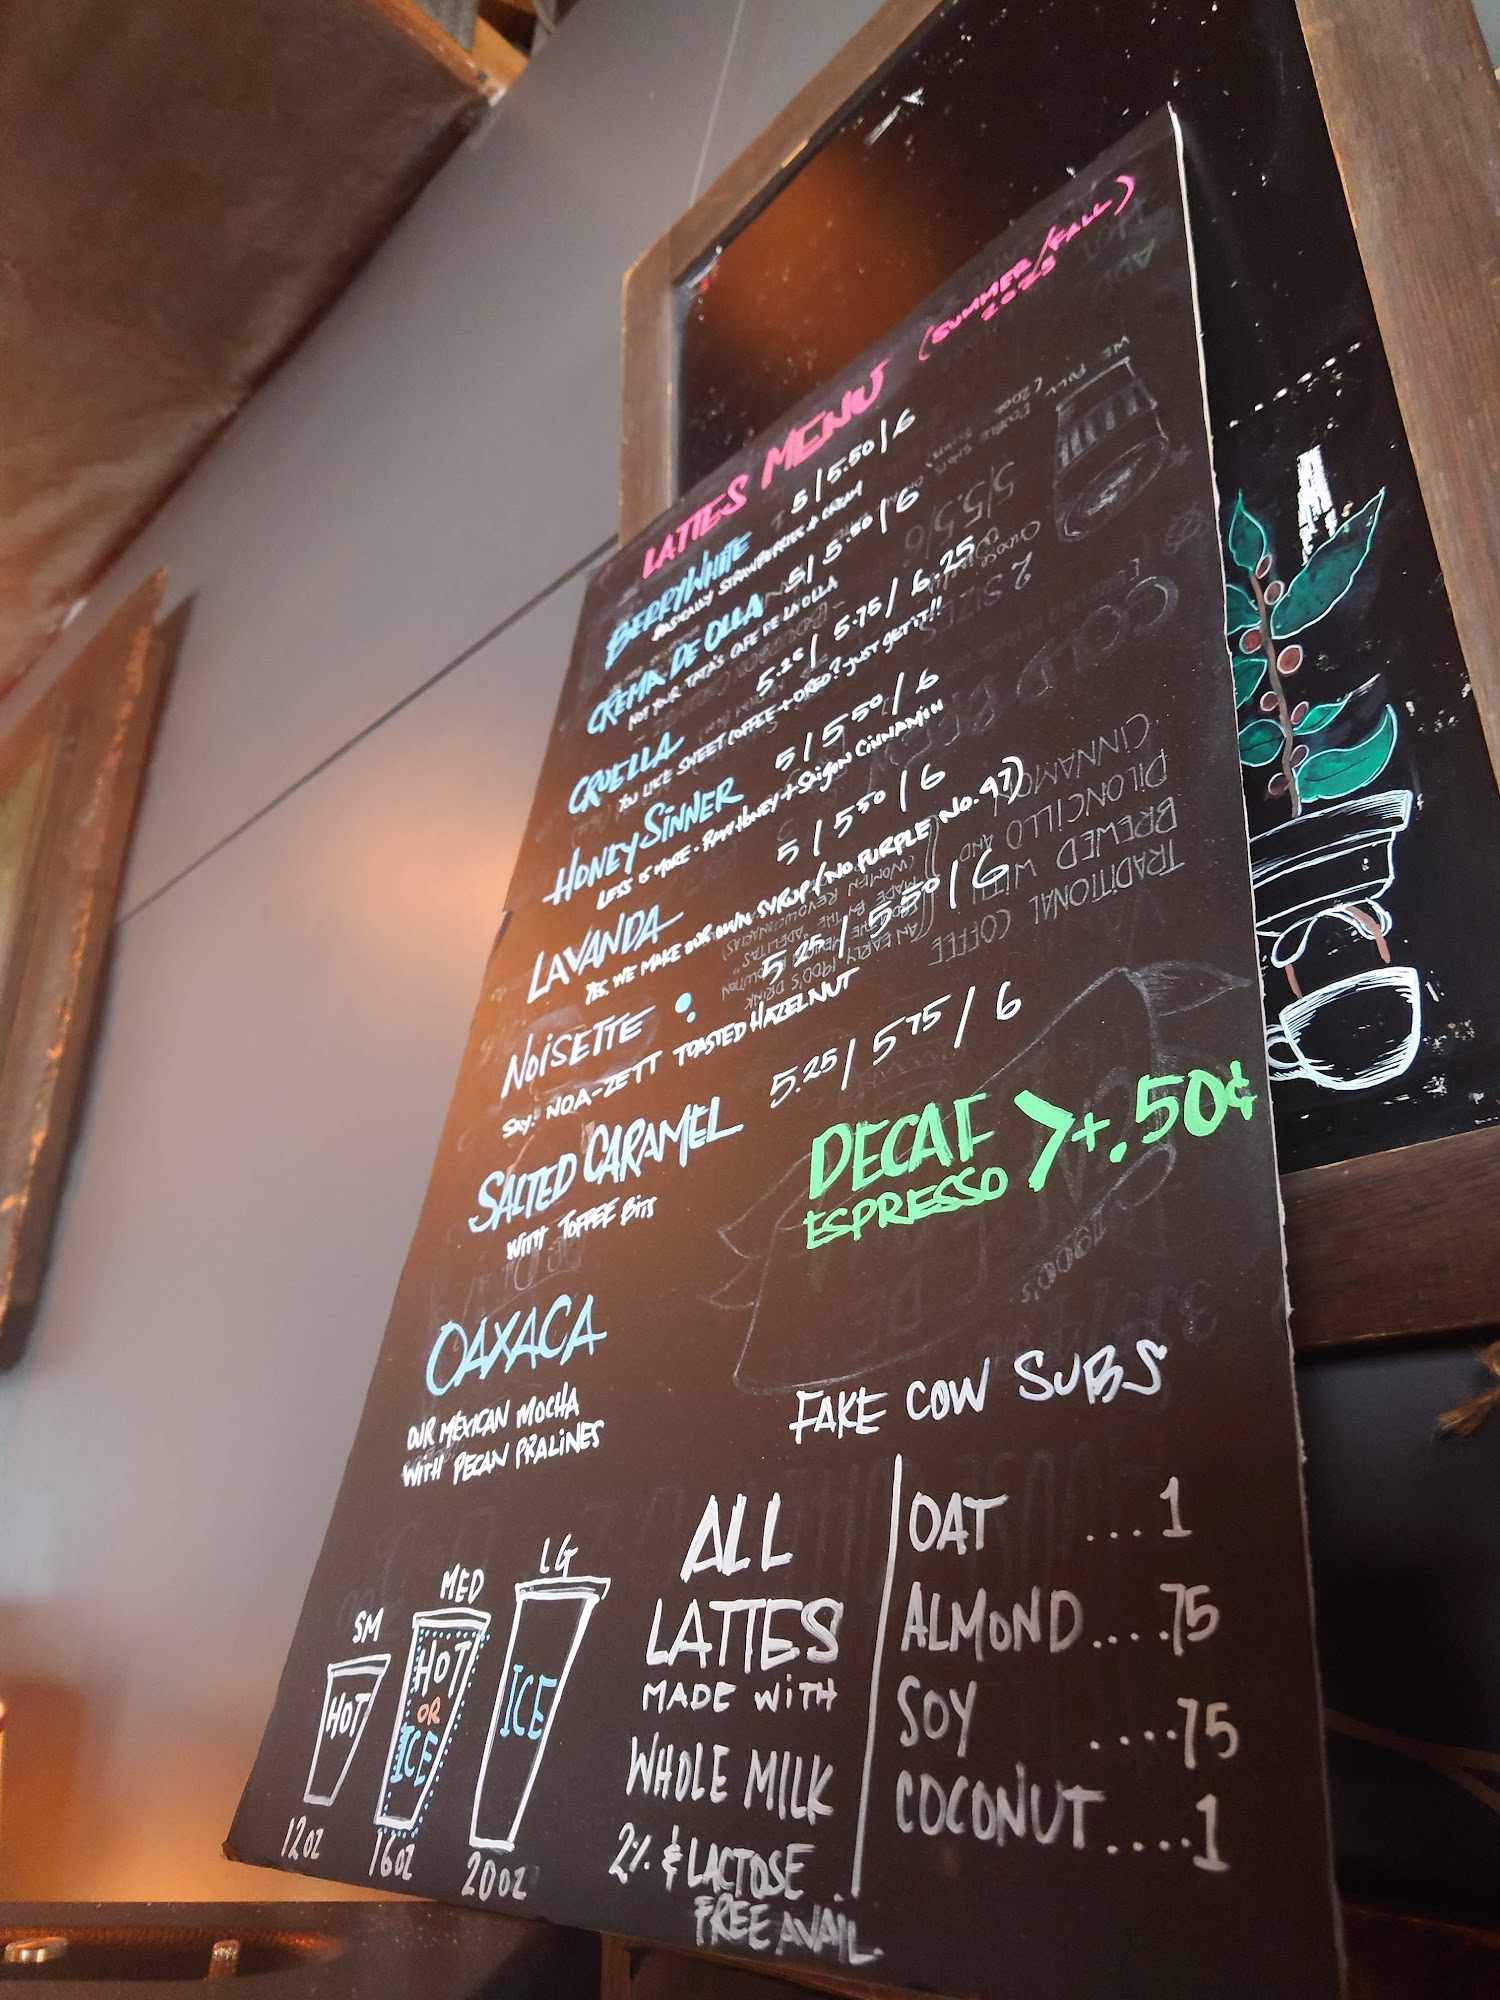 LATTES MENU (SUMMER/FALL)
2025
BERRYWHITE 5/5.50/6
BASICALLY STRAWBERRIES & CREAM
CREMA DE OLLA 5/5.50/6
NOT YOUR TATA'S CAFE DE LA OLLA
CRUELLA 5.25/5.75/6.25
YOU LIKE SWEET COFFEE + OREO? JUST GET IT!!
HONEY SINNER 5/5.50/6
LESS IS MORE - RAW HONEY + SAIGON CINNAMON
LAVANDA 5/5.50/6
YES, WE MAKE OUR OWN SYRUP (NO PURPLE NO. 47)
NOISETTE 5.25/5.50/6
SAY: NOA-ZETT TOASTED HAZELNUT
SALTED CARAMEL 5.25/5.75/6
WITH TOFFEE BITS
DECAF
ESPRESSO > +.50¢
OAXACA
OUR MEXICAN MOCHA
WITH PECAN PRALINES
FAKE COW SUBS
OAT ....1
ALMOND ....75
SOY ....75
COCONUT ....1
ALL
LATTES
MADE WITH
WHOLE MILK
2% & LACTOSE
FREE AVAIL.
SM MED LG
HOT
HOT
OR
ICE
ICE
12OZ 16OZ 20OZ
TRADITIONAL COFFEE
BREWED WITH
PILONCILLO AND
CINNAMON
COLD BREW
2 SIZES